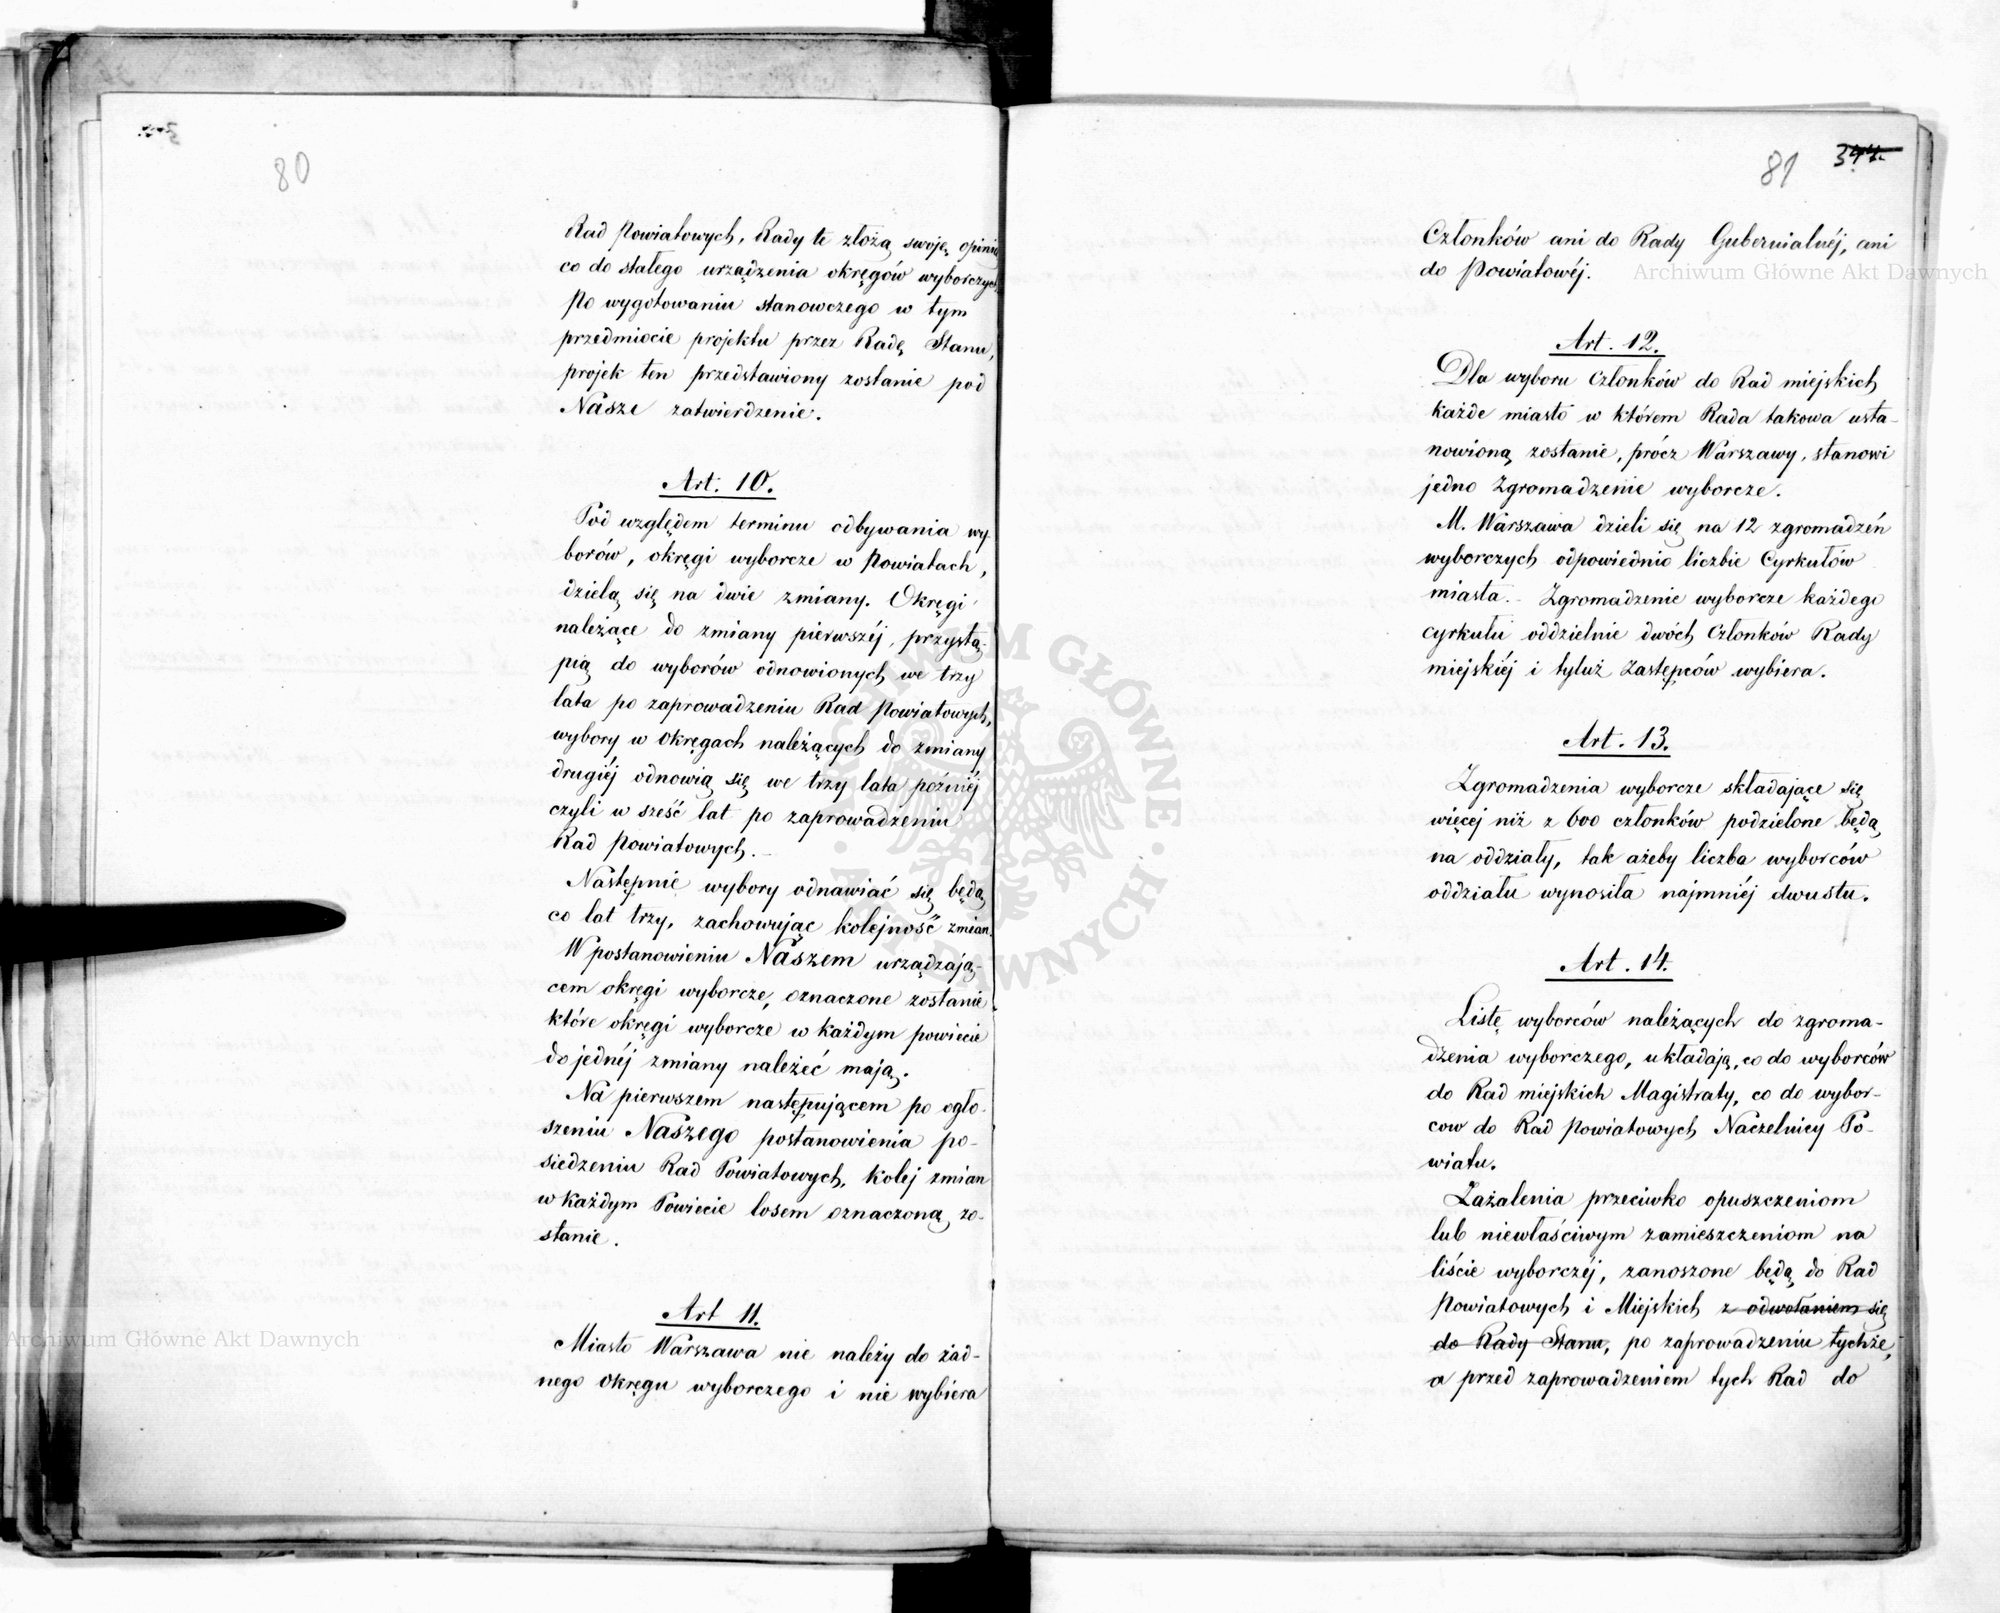 80
Rad Powiatowych, Rady te złożą swoję opinię
co do stałego urządzenia okręgów wyborczych
Po wygotowaniu stanowczego w tym
przedmiocie projektu przez Radę Stanu,
projek ten przedstawiony zostanie pod
Nasze zatwierdzenie.
Art. 10.
Pod względem terminu odbywania wy-
borów, okręgi wyborcze w Powiatach,
dzielą się na dwie zmiany. Okręgi
należące do zmiany pierwszéj, przystą-
pią do wyborów odnowionych we trzy
lata po zaprowadzeniu Rad Powiatowych,
wybory w okręgach należących do zmiany
drugiéj odnowią się we trzy lata późniéj
czyli w sześć lat po zaprowadzeniu
Rad Powiatowych.
Następnie wybory odnawiać się będą
co lat trzy, zachowując kolejność zmian.
W postanowieniu Naszem urządzają-
cem okręgi wyborcze, oznaczone zostanie
które okręgi wyborcze w każdym powiecie
do jednéj zmiany należeć mają.
Na pierwszem następującem po ogło-
szeniu Naszego postanowienia po-
siedzeniu Rad Powiatowych, kolej zmian
w każdym Powiecie losem oznaczoną zo-
stanie.
Art 11.
Miasto Warszawa nie należy do żad-
nego okręgu wyborczego i nie wybiera
81 344.
Członków ani do Rady Gubernialnéj, ani
do Powiatowéj.
Art. 12.
Dla wyboru Członków do Rad miejskich
każde miasto w którem Rada takowa usta-
nowioną zostanie, prócz Warszawy, stanowi
jedno Zgromadzenie wyborcze.
M. Warszawa dzieli się na 12 zgromadzeń
wyborczych odpowiednio liczbie Cyrkułów
miasta. Zgromadzenie wyborcze każdego
cyrkułu oddzielnie dwóch Członków Rady
miejskiéj i tyluż Zastępców wybiera.
Art. 13.
Zgromadzenia wyborcze składające się
więcej niż z 600 członków podzielone będą
na oddziały, tak ażeby liczba wyborców
oddziału wynosiła najmniéj dwustu.
Art. 14.
Listę wyborców należących do zgroma-
dzenia wyborczego, układają, co do wyborców
do Rad miejskich Magistraty, co do wybor-
cow do Rad Powiatowych Naczelnicy Po-
wiatu.
Zażalenia przeciwko opuszczeniom
lub niewłaściwym zamieszczeniom na
liście wyborczéj, zanoszone będą do Rad
Powiatowych i Miejskich z odwołaniem się
do Rady Stanu, po zaprowadzeniu tychże,
a przed zaprowadzeniem tych Rad do
Archiwum Główne Akt Dawnych
Archiwum Główne Akt Dawnych